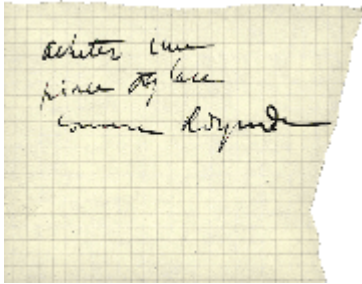 acheter une
pince à glace
comme Raymonde